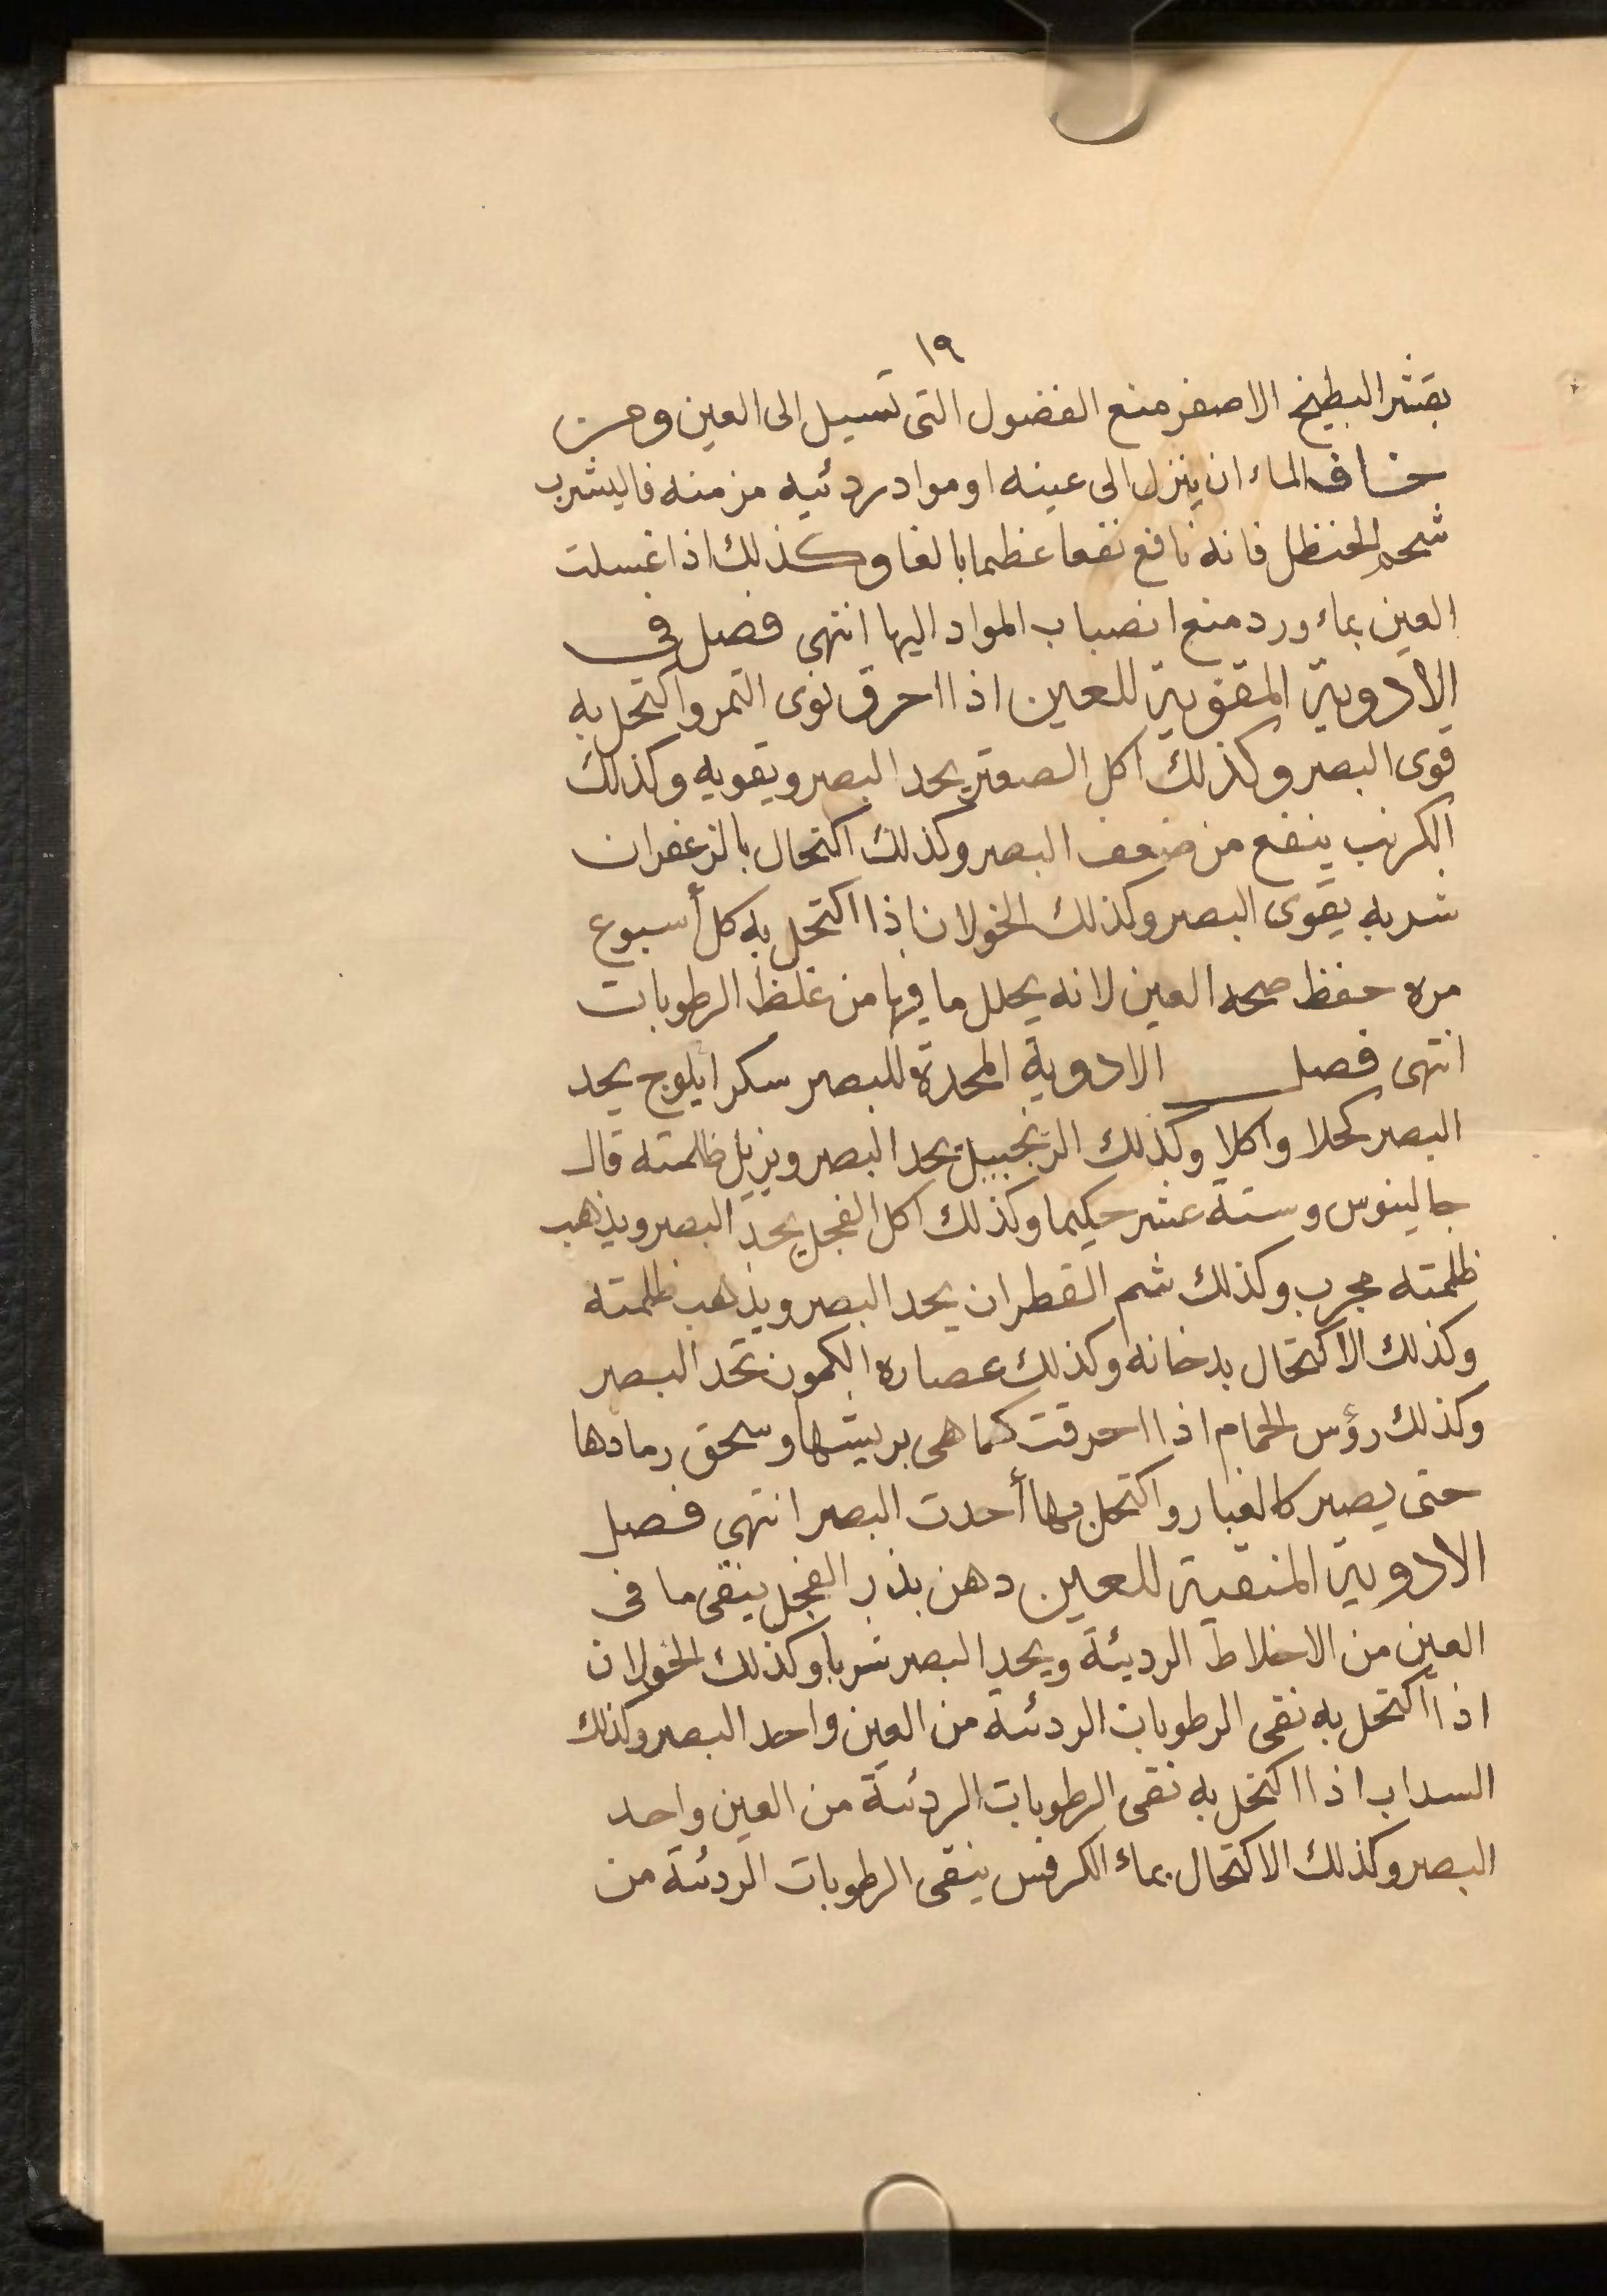 ١٩
بقشر البطيخ الاصفر منع الفضول التى تسيل الى العين ومن
خاف الماء ان ينزل الى عينه او مواد ردئيه مزمنه فاليشرب
شحم الحنظل فانه نافع نفعا عظما بالغا وكذلك اذا غسلت
العين بماء ورد منع انصباب المواد اليها انتهى فصل فى
الادوية المقوية للعين اذا احرق نوى التمر واكتحل به
قوى البصر وكذلك اكل الصعتر يحد البصر ويقويه وكذلك
الكرنب ينفع من ضعف البصر وكذلك اكتحال بالزعفران
شربه يقوى البصر وكذلك الخولان اذا اكتحل به كل أسبوع
مره حفظ صحه العين لانه يحلل ما فيها من غلظ الرطوبات
انتهى فصل الادوية المحدة للبصر سكر ايلوج يحد
البصر كحلا واكلا وكذلك الزنجبيل يحد البصر ويزيل ظلمته قال
جالينوس وستة عشر حكيما وكذلك اكل الفجل يحد البصر ويذهب
ظلمته مجرب وكذلك شم القطران يحد البصر ويذهب ظلمته
وكذلك الاكتحال بدخانه وكذلك عصاره الكمون تحد البصر
وكذلك رؤس الحمام اذا احرقت كما هى بريشها وسحق رمادها
حتى يصير كالغبار واكتحل بها أحدت البصر انتهى فصل
الادوية المنقية للعين دهن بذر الفجل ينقى ما فى
العين من الاخلاط الرديئة ويحد البصر شربا وكذلك الخولان
اذا اكتحل به نقى الرطوبات الردئة من العين واحد البصر وكذلك
السداب اذا اكتحل به نقى الرطوبات الردئة من العين واحد
البصر وكذلك الاكتحال بماء الكرفس ينقى الرطوبات الردئة من